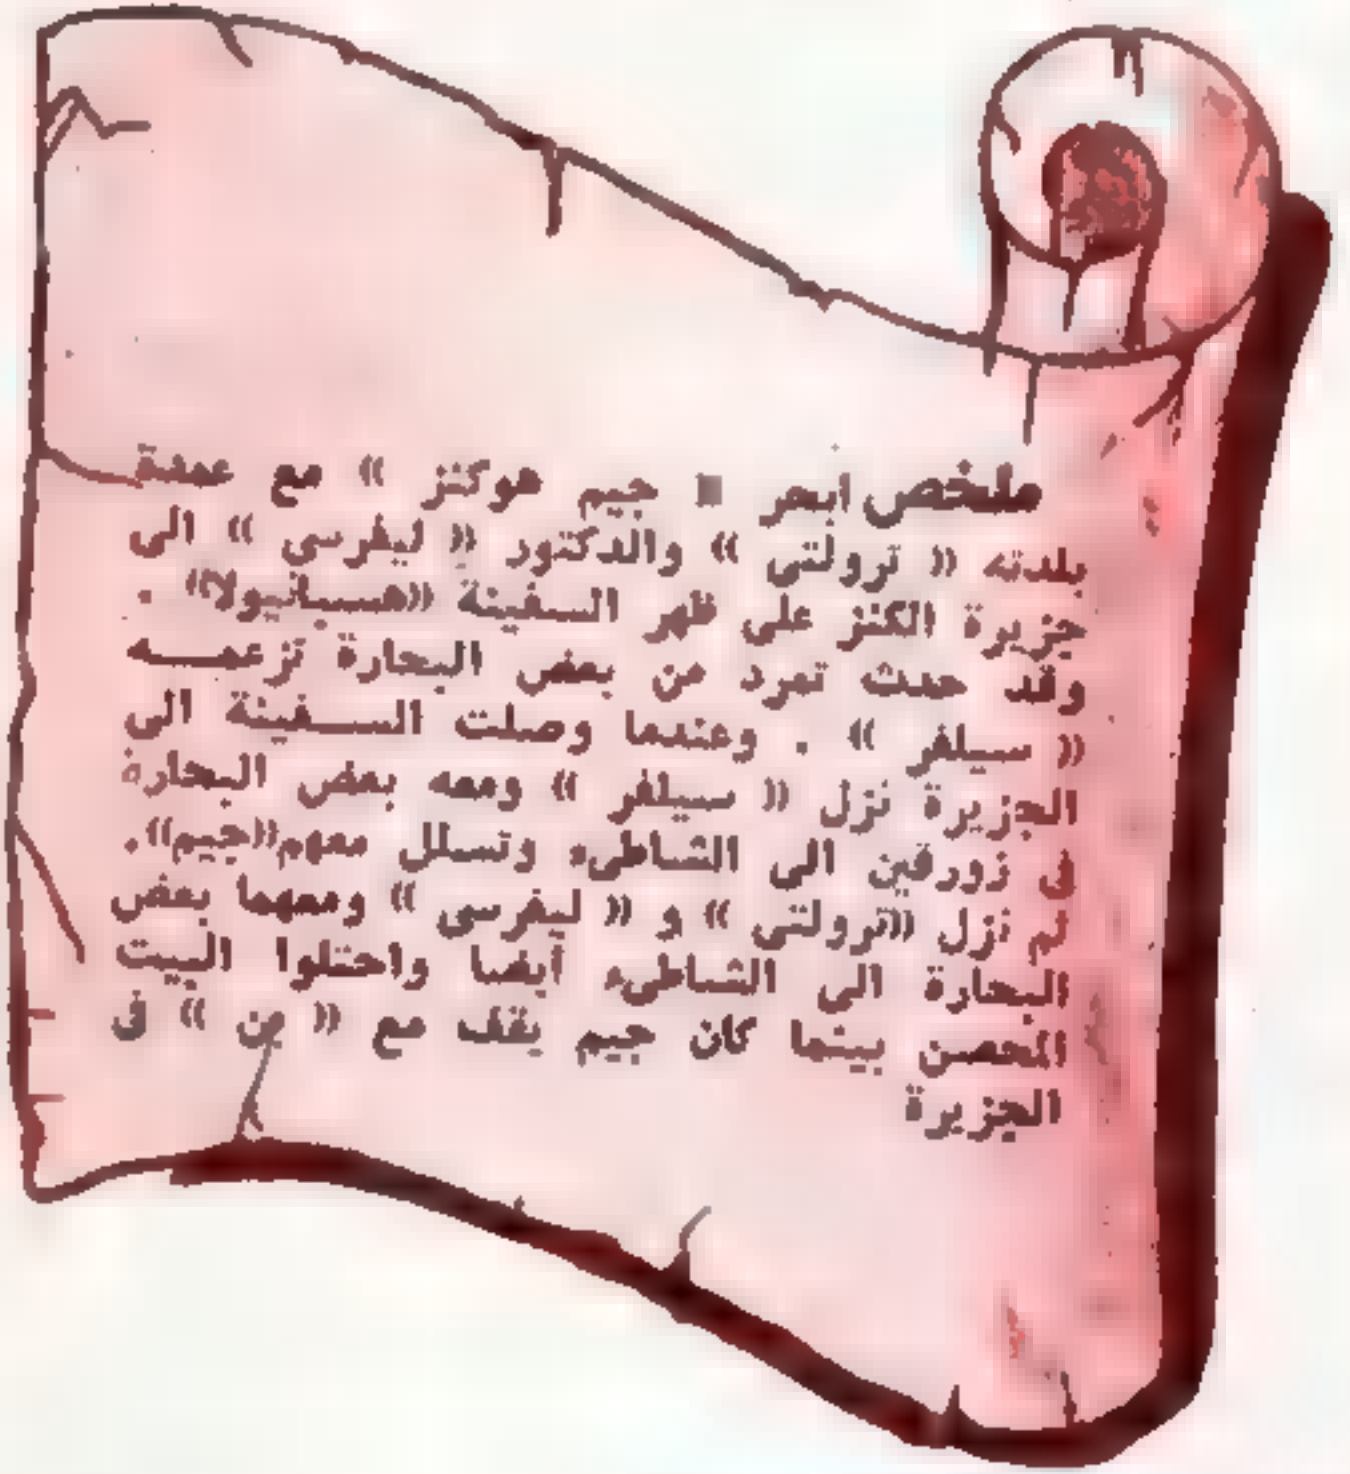 ملخص ابحر « جيم هوكنز » مع عمدة
بلدته « ترولتى » والدكتور « ليفرسى » الى
جزيرة الكنز على ظهر السفينة «هسبانيولا» .
وقد حدث تمرد من بعض البحارة تزعمه
« سيلفر » . وعندما وصلت السفينة الى
الجزيرة نزل « سيلفر » ومعه بعض البحارة
فى زورقين الى الشاطىء وتسلل معهم«جيم».
ثم نزل «ترولتى » و « ليفرسى » ومعهما بعض
البحارة الى الشاطىء أيضا واحتلوا البيت
المحصن بينما كان جيم يقف مع « بن » فى
الجزيرة